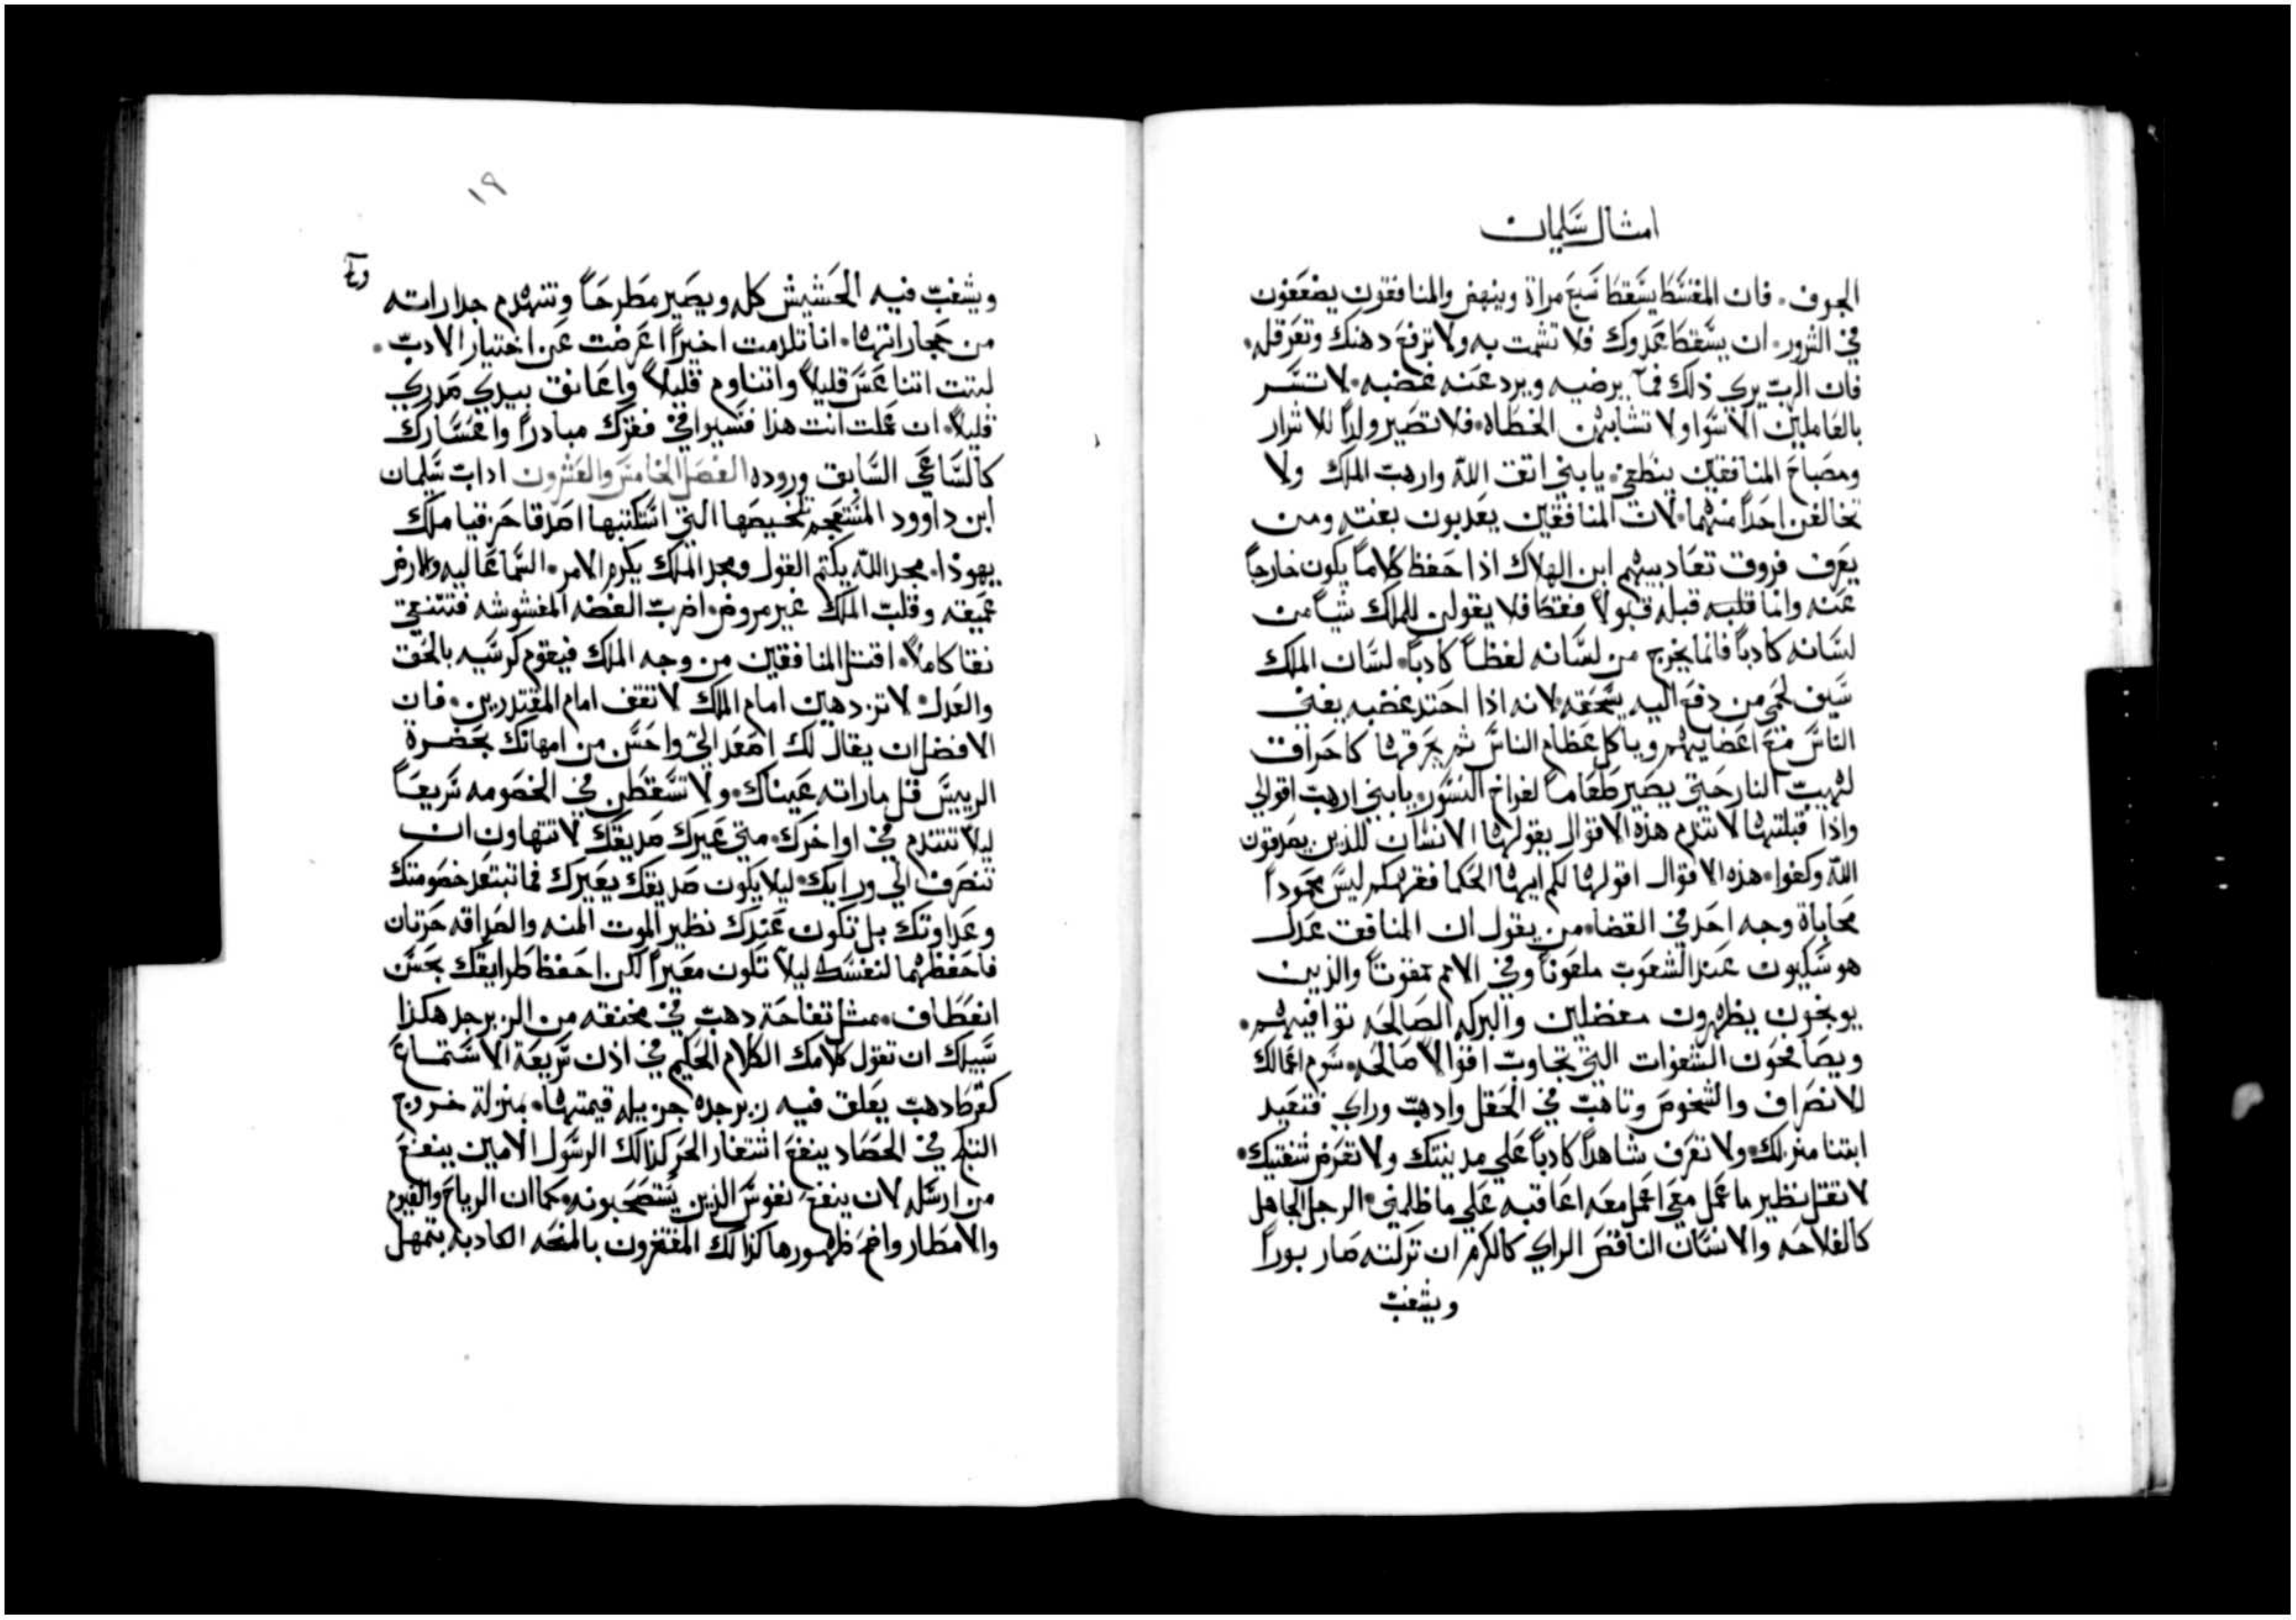 امثال سليمان
الجوف. فان المقسط يسقط سبع مراة وينهض والمنافقون يضعفون
في الشرور. ان يسقط عدوك فلا تشمت به ولا ترفع دهنك وتعرقله.
فان الرب يري ذلك فما يرضيه ويرد عنه غضبه. لا تسر
بالعاملين الاسوا ولا تشابهن الخطاه. فلا تصير ولدا للاشرار
ومصباح المنافقين ينطفي. يا بني اتق الله وارهب الملك ولا
تخالفن احدا منهما. لان المنافقين يعدبون بغته ومن
يعرف فروق تعاديبهم ابن الهلاك اذا حفظ كلاما يكون خارجا
عنه وانما قلبه قبله قبولا فقط فلا يقولن للملك شيا من
لسانه كادبا فانما يخرج من لسانه لفظا كادبا. لسان الملك
سيف لحمي من دفع اليه يسحقه. لانه اذا احتد غضبه يفني
الناس مع اعضايهم وياكل عظام الناس ثم يحرقها كاحراق
لهيب النار حتي يصير طعاما لفراخ النسور. يا بني ارهب اقوالي
واذا قبلتها لا تندم هذه الاقوال يقولها الانسان للذين يصدقون
الله وكفوا. هذه الاقوال اقولها لكم ايها الحكما فقرهكم ليس محمودا
محاباة وجه احد في القضا. من يقول ان المنافق عدل
هو سيكون عند الشعوب ملعونا وفي الامم ممقوتا والذين
يوبخون يظهرون مفضلين والبركه الصالحه توافيهم.
ويصافحون الشفوات التي تجاوب اقوالا صالحه. سوم اعمالك
للانصراف والشخوص وتاهب في الحقل وادهب وراي فتعيد
ابتنا منزلك. ولا تعرف شاهدا كادبا علي مدينتك ولا تعرض شفتيك.
لا تقل نظير ما عمل معي اعمل معه اعاقبه علي ما ظلمني. الرجل الجاهل
كالفلاحه والانسان الناقص الراي كالكرم ان تركته صار بورا
ويشغب
١٩
ويشغب فيه الحشيش كله ويصير مطرحا وتنهدم جداراته
من حجارانها. انا تلدمت اخيرا اعرضت عن اختيار الادب.
لبتت اتناعس قليلا واتناوم قليلا واعانق بيدي صدري
قليلا. ان عملت انت هذا فسيوافي فقرك مبادرا واعسارك
كالساعي السابق وروده الفصل الخامس والعشرون اداب سليمان
ابن داوود المستعجم تلخيصها التي استكتبها اصدقا حزقيا ملك
يهودا. مجد الله يكتم القول ومجد الملك يكرم الامر. السما عاليه والارض
عميقه وقلب الملك غير مروض. اضرب الفضه المغشوشه فتتنقي
نقا كاملا. اقتل المنافقين من وجه الملك فيقوم كرسيه بالحق
والعدل. لا تزدهين امام الملك لا تقف امام المقتدرين. فان
الافضل ان يقال لك اصعد الي واحسن من امهانك بحضرة
الرييس قل ماراته عيناك. ولا تسقطن في الخصومه سريعا
ليلا تتندم في اواخرك. متي عيرك صديقك لا تتهاون ان
تنصرف الي ورايك. ليلا يكون صديقك يعيرك فما تبتعد خصومتك
وعداوتك بل تكون عندك نظير الموت المنه والصداقه حرتان
فاحفظهما لنفسك ليلا تكون معيرا لكن احفظ طرايقك بحسن
انعطاف. مثل تفاحة دهب في مخنقه من الزبرجد هكذا
سبيلك ان تقول كلامك الكلام الحكيم في اذن سريعة الاستماع
كقرط دهب يعلق فيه زبرجده جزيله قيمتها. بمنزلة خروج
الثلج في الحصاد ينفع استغار الحر كذلك الرسول الامين ينفع
من ارسله لان ينفع نفوس الذين يستصحبونه. كما ان الرياح والغيوم
والامطار واضح ظهورها كذلك المفتخرون بالمنحه الكادبه بتمهل